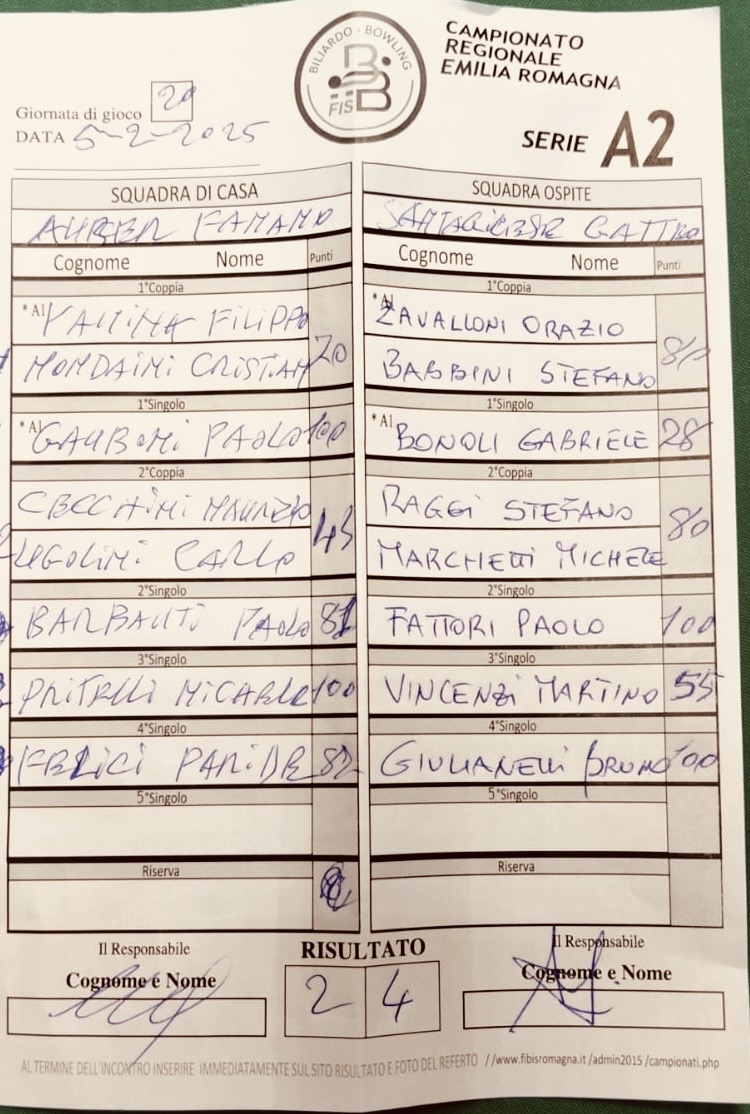 BILIARDO - BOWLING
FISBB
CAMPIONATO
REGIONALE
EMILIA ROMAGNA
Giornata di gioco 20
DATA 5-2-2025
SERIE A2
SQUADRA DI CASA SQUADRA OSPITE
Cognome Nome Punti Cognome Nome Punti
1°Coppia 1°Coppia
*Al FILIPPO *Al ZAVALLONI ORAZIO
MONDAINI CRISTIAN 20 BABBINI STEFANO 80
1°Singolo 1°Singolo
*Al GAUDONI PAOLO 100 *Al BONOLI GABRIELE 28
2°Coppia 2°Coppia
CECCHINI MAURIZIO RAGGI STEFANO
UGOLINI CARLO MARCHETTI MICHELE 80
2°Singolo 2°Singolo
PAOLO 81 FATTORI PAOLO 100
3°Singolo 3°Singolo
100 VINCENZI MARTINO 55
4°Singolo 4°Singolo
FELICI PARIDE 82 GIULIANELLI BRUNO 100
5°Singolo 5°Singolo
Riserva Riserva
Il Responsabile RISULTATO Il Responsabile
Cognome e Nome 2 4 Cognome e Nome
AL TERMINE DELL'INCONTRO INSERIRE IMMEDIATAMENTE SUL SITO RISULTATO E FOTO DEL REFERTO //www.fibisromagna.it /admin2015 /campionati.php